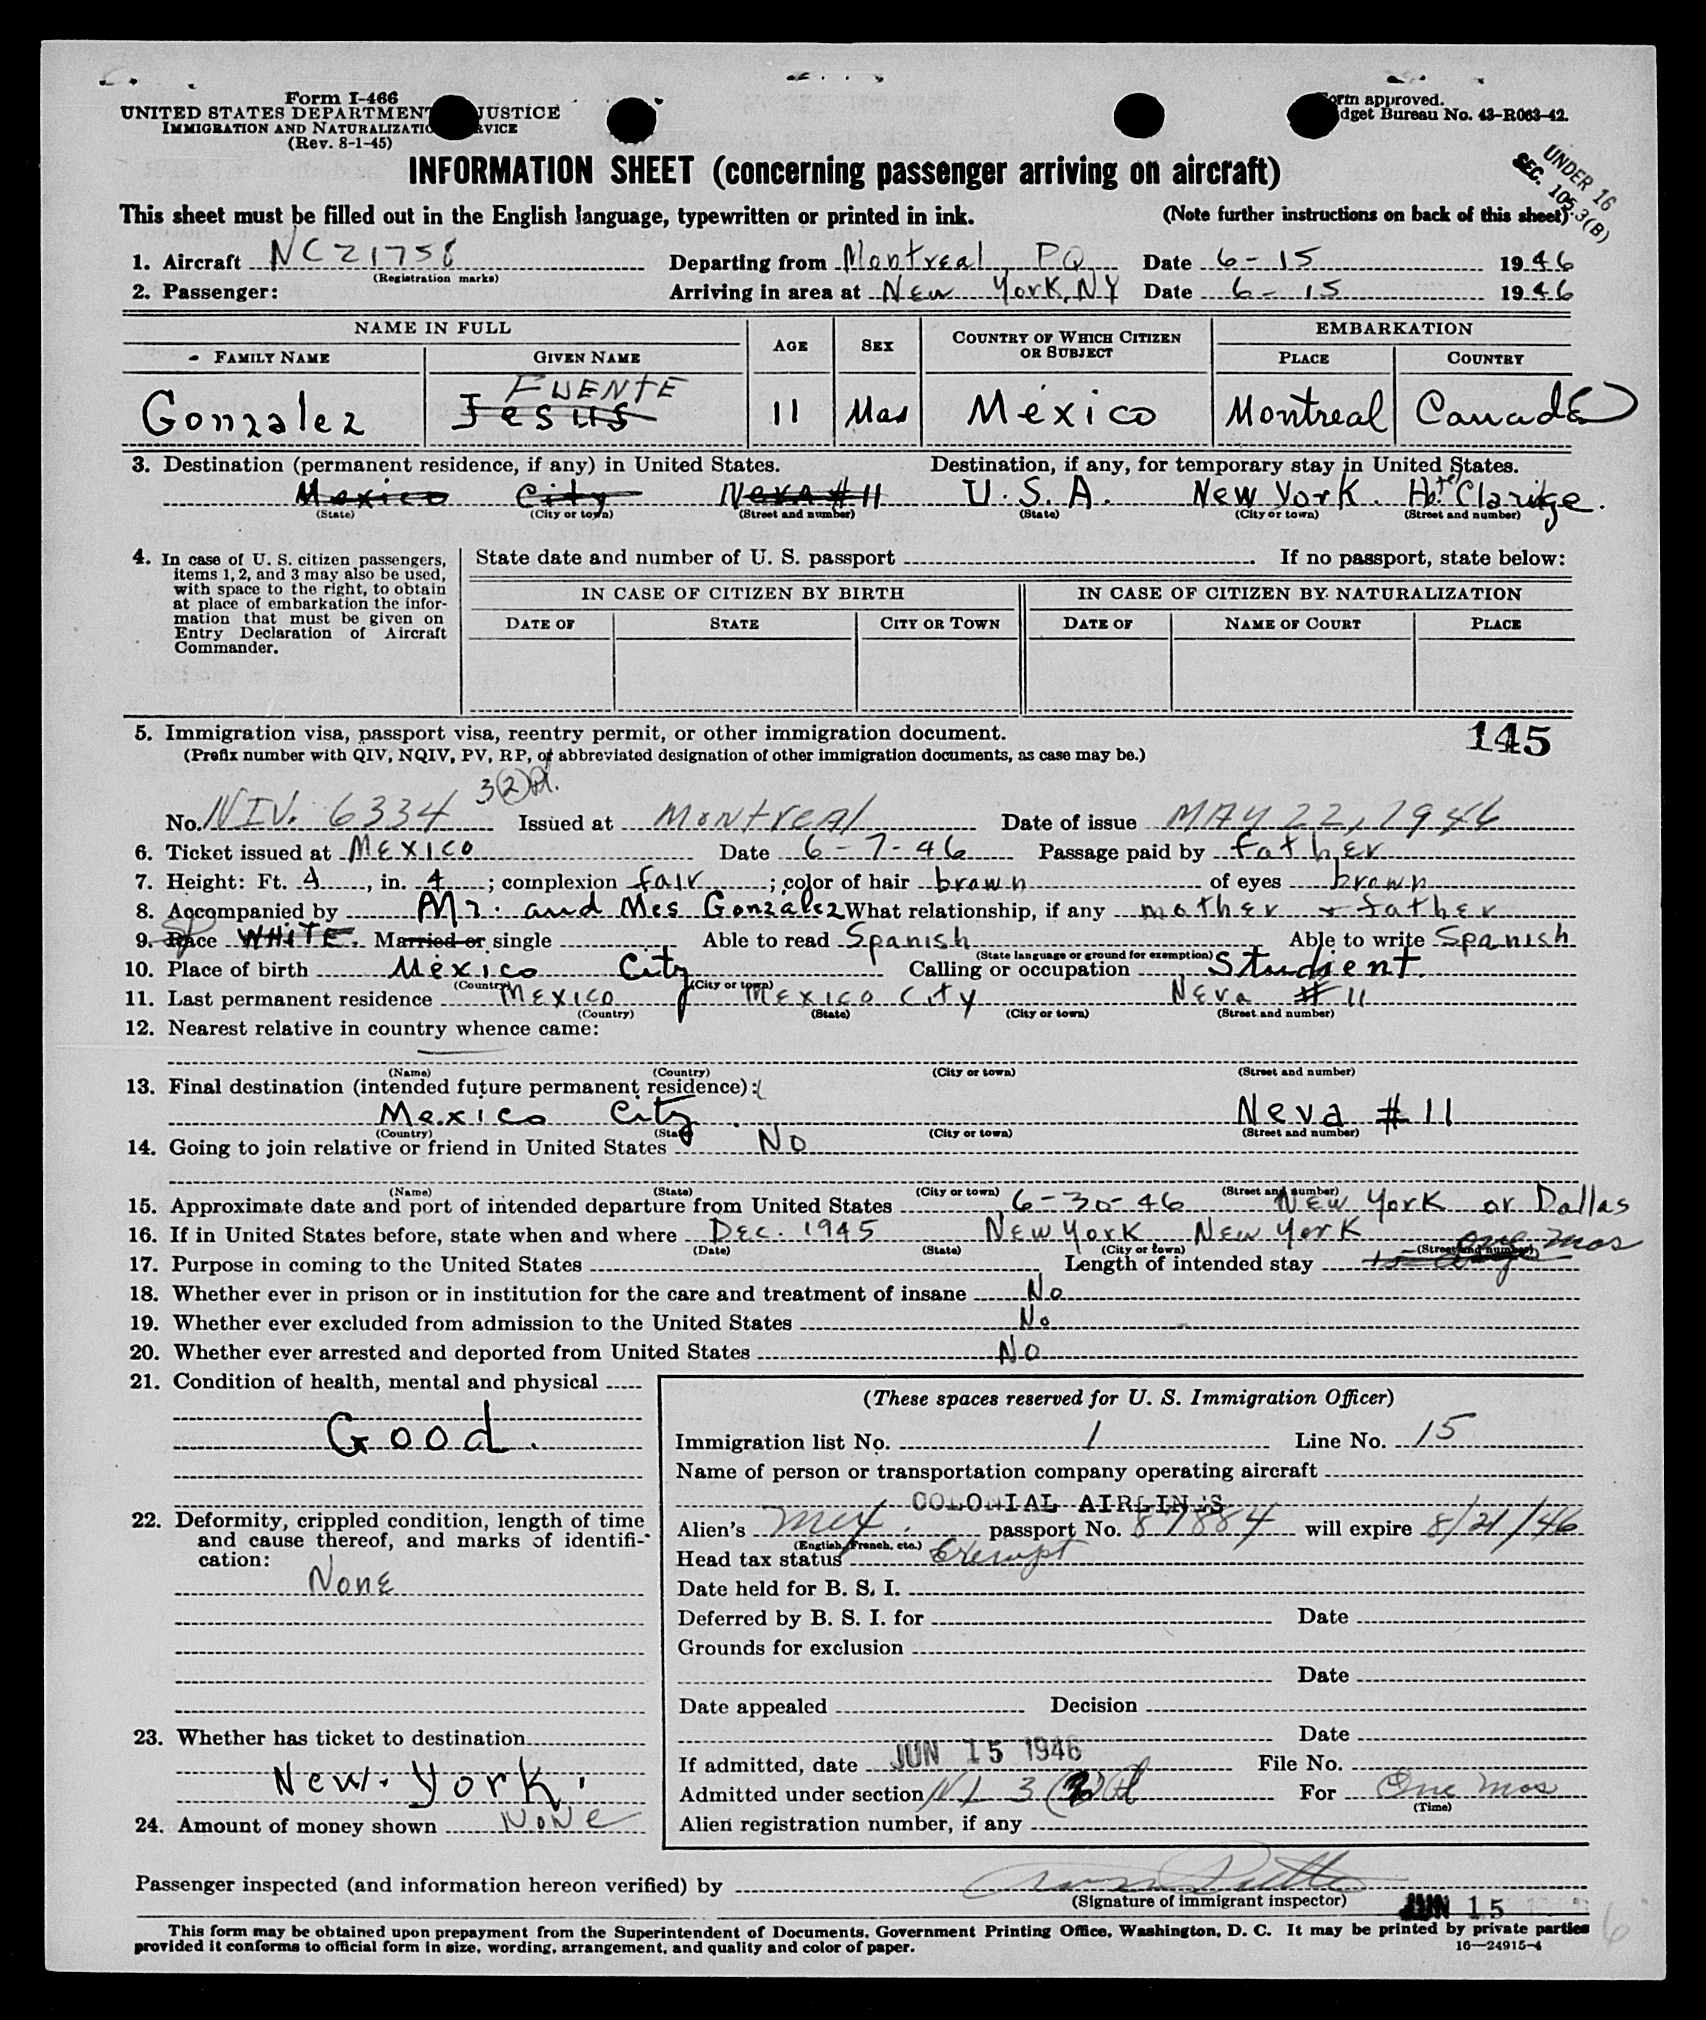 Form I-466
UNITED STATES DEPARTMENT JUSTICE
IMMIGRATION AND NATURALIZATIO RVICE
(Rev. 8-1-45)
orm approved.
dget Bureau No. 43-R063-42.
INFORMATION SHEET (concerning passenger arriving on aircraft)
UNDER 16
SEC. 105.3(B)
This sheet must be filled out in the English language, typewritten or printed in ink. (Note further instructions on back of this sheet)
1. Aircraft NC21758 Departing from Montreal PQ Date 6-15 1946
(Registration marks)
2. Passenger: Arriving in area at New York, NY Date 6-15 1946
NAME IN FULL AGE SEX COUNTRY OF WHICH CITIZEN OR SUBJECT EMBARKATION
FAMILY NAME GIVEN NAME PLACE COUNTRY
FUENTE
Gonzalez Jesus 11 Mas México Montreal Canada
3. Destination (permanent residence, if any) in United States. Destination, if any, for temporary stay in United States.
Mexico City Neva #11 U.S.A. New York. Hotel Claridge.
(State) (City or town) (Street and number) (State) (City or town) (Street and number)
4. In case of U. S. citizen passengers, items 1, 2, and 3 may also be used, with space to the right, to obtain at place of embarkation the information that must be given on Entry Declaration of Aircraft Commander.
State date and number of U. S. passport . If no passport, state below:
IN CASE OF CITIZEN BY BIRTH IN CASE OF CITIZEN BY NATURALIZATION
DATE OF STATE CITY OR TOWN DATE OF NAME OF COURT PLACE
5. Immigration visa, passport visa, reentry permit, or other immigration document. 145
(Prefix number with QIV, NQIV, PV, RP, or abbreviated designation of other immigration documents, as case may be.)
3(2)
No. NIV. 6334 Issued at Montreal Date of issue MAY 22, 1946
6. Ticket issued at Mexico Date 6-7-46 Passage paid by father
7. Height: Ft. 4, in. 4; complexion fair; color of hair brown of eyes brown
8. Accompanied by Mr. and Mrs Gonzalez What relationship, if any mother + father
9. Race WHITE. Married or single Able to read Spanish Able to write Spanish
(State language or ground for exemption)
10. Place of birth México City Calling or occupation Studient.
(Country) (City or town)
11. Last permanent residence Mexico Mexico City Neva #11
(Country) (State) (City or town) (Street and number)
12. Nearest relative in country whence came:
(Name) (Country) (City or town) (Street and number)
13. Final destination (intended future permanent residence):
Mexico City. Neva #11
(Country) (State) (City or town) (Street and number)
14. Going to join relative or friend in United States No
(Name) (State) (City or town) (Street and number)
15. Approximate date and port of intended departure from United States 6-30-46 New York or Dallas
16. If in United States before, state when and where Dec. 1945 New York New York
(Date) (State) (City or town) (Street and number)
17. Purpose in coming to the United States Length of intended stay One mos
18. Whether ever in prison or in institution for the care and treatment of insane No
19. Whether ever excluded from admission to the United States No
20. Whether ever arrested and deported from United States No
21. Condition of health, mental and physical
Good.
(These spaces reserved for U. S. Immigration Officer)
Immigration list No. 1 Line No. 15
Name of person or transportation company operating aircraft
COLONIAL AIRLINES
22. Deformity, crippled condition, length of time and cause thereof, and marks of identification:
None
Alien's Mex. passport No. 87884 will expire 8/21/46
(English, French, etc.)
Head tax status Exempt
Date held for B. S. I.
Deferred by B. S. I. for Date
Grounds for exclusion
Date
Date appealed Decision
23. Whether has ticket to destination
New York.
Date
If admitted, date JUN 15 1946 File No.
Admitted under section 3(2) For One mos
(Time)
24. Amount of money shown None
Alien registration number, if any
Passenger inspected (and information hereon verified) by
(Signature of immigrant inspector) JUN 15
This form may be obtained upon prepayment from the Superintendent of Documents, Government Printing Office, Washington, D. C. It may be printed by private parties
provided it conforms to official form in size, wording, arrangement, and quality and color of paper. 16—24915-4